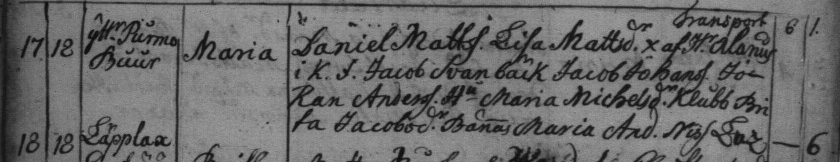 Transport 6 1.
17 18 ytt. Purmo Maria Daniel Matts. Lisa Mattsd.r x af H.r Alanus
Buur i K. J. Jacob Svanbäck Jacob Johans. Jö-
ran Anders. Hu Maria Michelsd.r Klubb Bri
ta Jacobsd.r Banas Maria And. Niss
18 18 Läpplax — 6